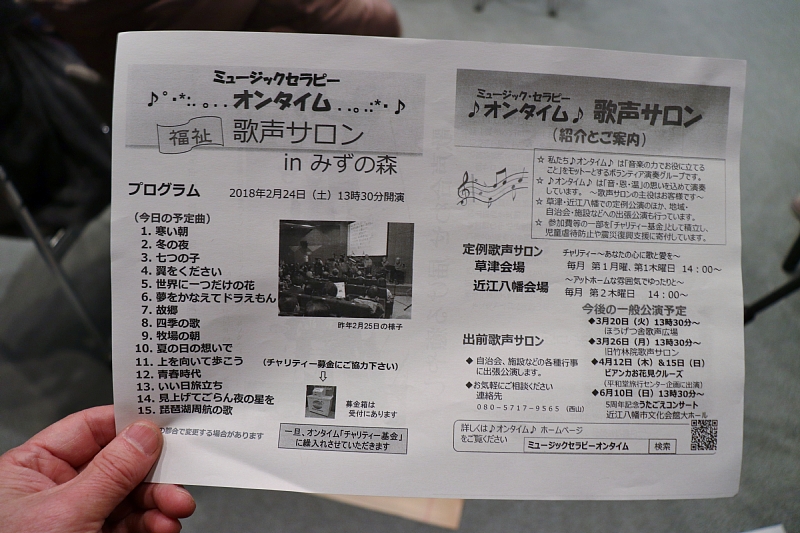 ミュージックセラピー
♪°・*:.。. . オンタイム . . 。.:*・♪
福祉 歌声サロン
in みずの森
プログラム 2018年2月24日（土）13時30分開演
（今日の予定曲）
1. 寒い朝
2. 冬の夜
3. 七つの子
4. 翼をください
5. 世界に一つだけの花
6. 夢をかなえてドラえもん
7. 故郷
8. 四季の歌
9. 牧場の朝
10. 夏の日の想いで
11. 上を向いて歩こう
12. 青春時代
13. いい日旅立ち
14. 見上げてごらん夜の星を
15. 琵琶湖周航の歌
の都合で変更する場合があります
昨年2月25日の様子
（チャリティー募金にご協力下さい）
募金箱は
受付にあります
一旦、オンタイム「チャリティー基金」
に繰入れさせていただきます
ミュージック・セラピー
♪オンタイム♪ 歌声サロン
（紹介とご案内）
☆ 私たち♪オンタイム♪ は「音楽の力でお役に立てる
こと」をモットーとするボランティア演奏グループです。
☆ ♪オンタイム♪ は「音・恩・温」の思いを込めて演奏
しています。 ～歌声サロンの主役はお客様です～
☆ 草津・近江八幡での定例公演のほか、地域・
自治会・施設などへの出張公演も行っています。
☆ 参加費等の一部を「チャリティー基金」として積立し、
児童虐待防止や震災復興支援に寄付しています。
定例歌声サロン チャリティー～あなたの心に歌と愛を～
草津会場 毎月 第１月曜、第1木曜日 14：00～
～アットホームな雰囲気でゆったりと～
近江八幡会場 毎月 第２木曜日 14：00～
今後の一般公演予定
◆3月20日（火）13時30分～
ほうげつ舎歌声広場
◆3月26日（月）13時30分～
旧竹林院歌声サロン
◆4月12日（木）&15日（日）
ビアンカお花見クルーズ
（平和堂旅行センター企画に出演）
◆6月10日（日）13時30分～
5周年記念うたごえコンサート
近江八幡市文化会館大ホール
出前歌声サロン
◆ 自治会、施設などの各種行事
に出張公演します。
◆お気軽にご相談ください
連絡先
０８０－５７１７－９５６５（西山）
詳しくは♪オンタイム♪ ホームページ
をご覧ください ミュージックセラピーオンタイム 検索